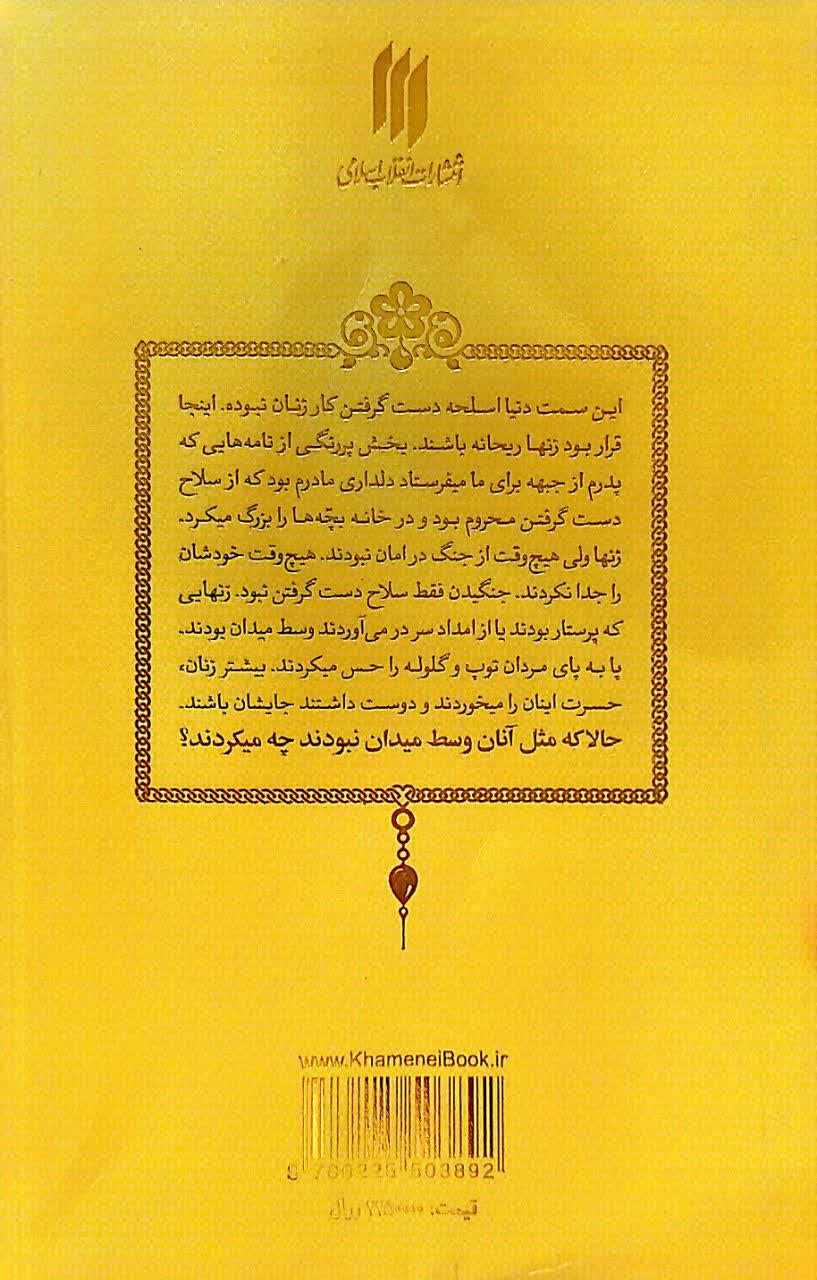 انتشارات انقلاب اسلامی
این سمت دنیا اسلحه دست گرفتن کار زنان نبوده. اینجا
قرار بود زنها ریحانه باشند. بخش پررنگی از نامه‌هایی که
پدرم از جبهه برای ما میفرستاد دلداری مادرم بود که از سلاح
دست گرفتن محروم بود و در خانه بچّه‌ها را بزرگ میکرد.
زنها ولی هیچ‌وقت از جنگ در امان نبودند. هیچ‌وقت خودشان
را جدا نکردند. جنگیدن فقط سلاح دست گرفتن نبود. زنهایی
که پرستار بودند یا از امداد سر در می‌آوردند وسط میدان بودند.
پا به پای مردان توپ و گلوله را حس میکردند. بیشتر زنان،
حسرت اینان را میخوردند و دوست داشتند جایشان باشند.
حالا که مثل آنان وسط میدان نبودند چه میکردند؟
www.KhameneiBook.ir
503892
قیمت: ریال